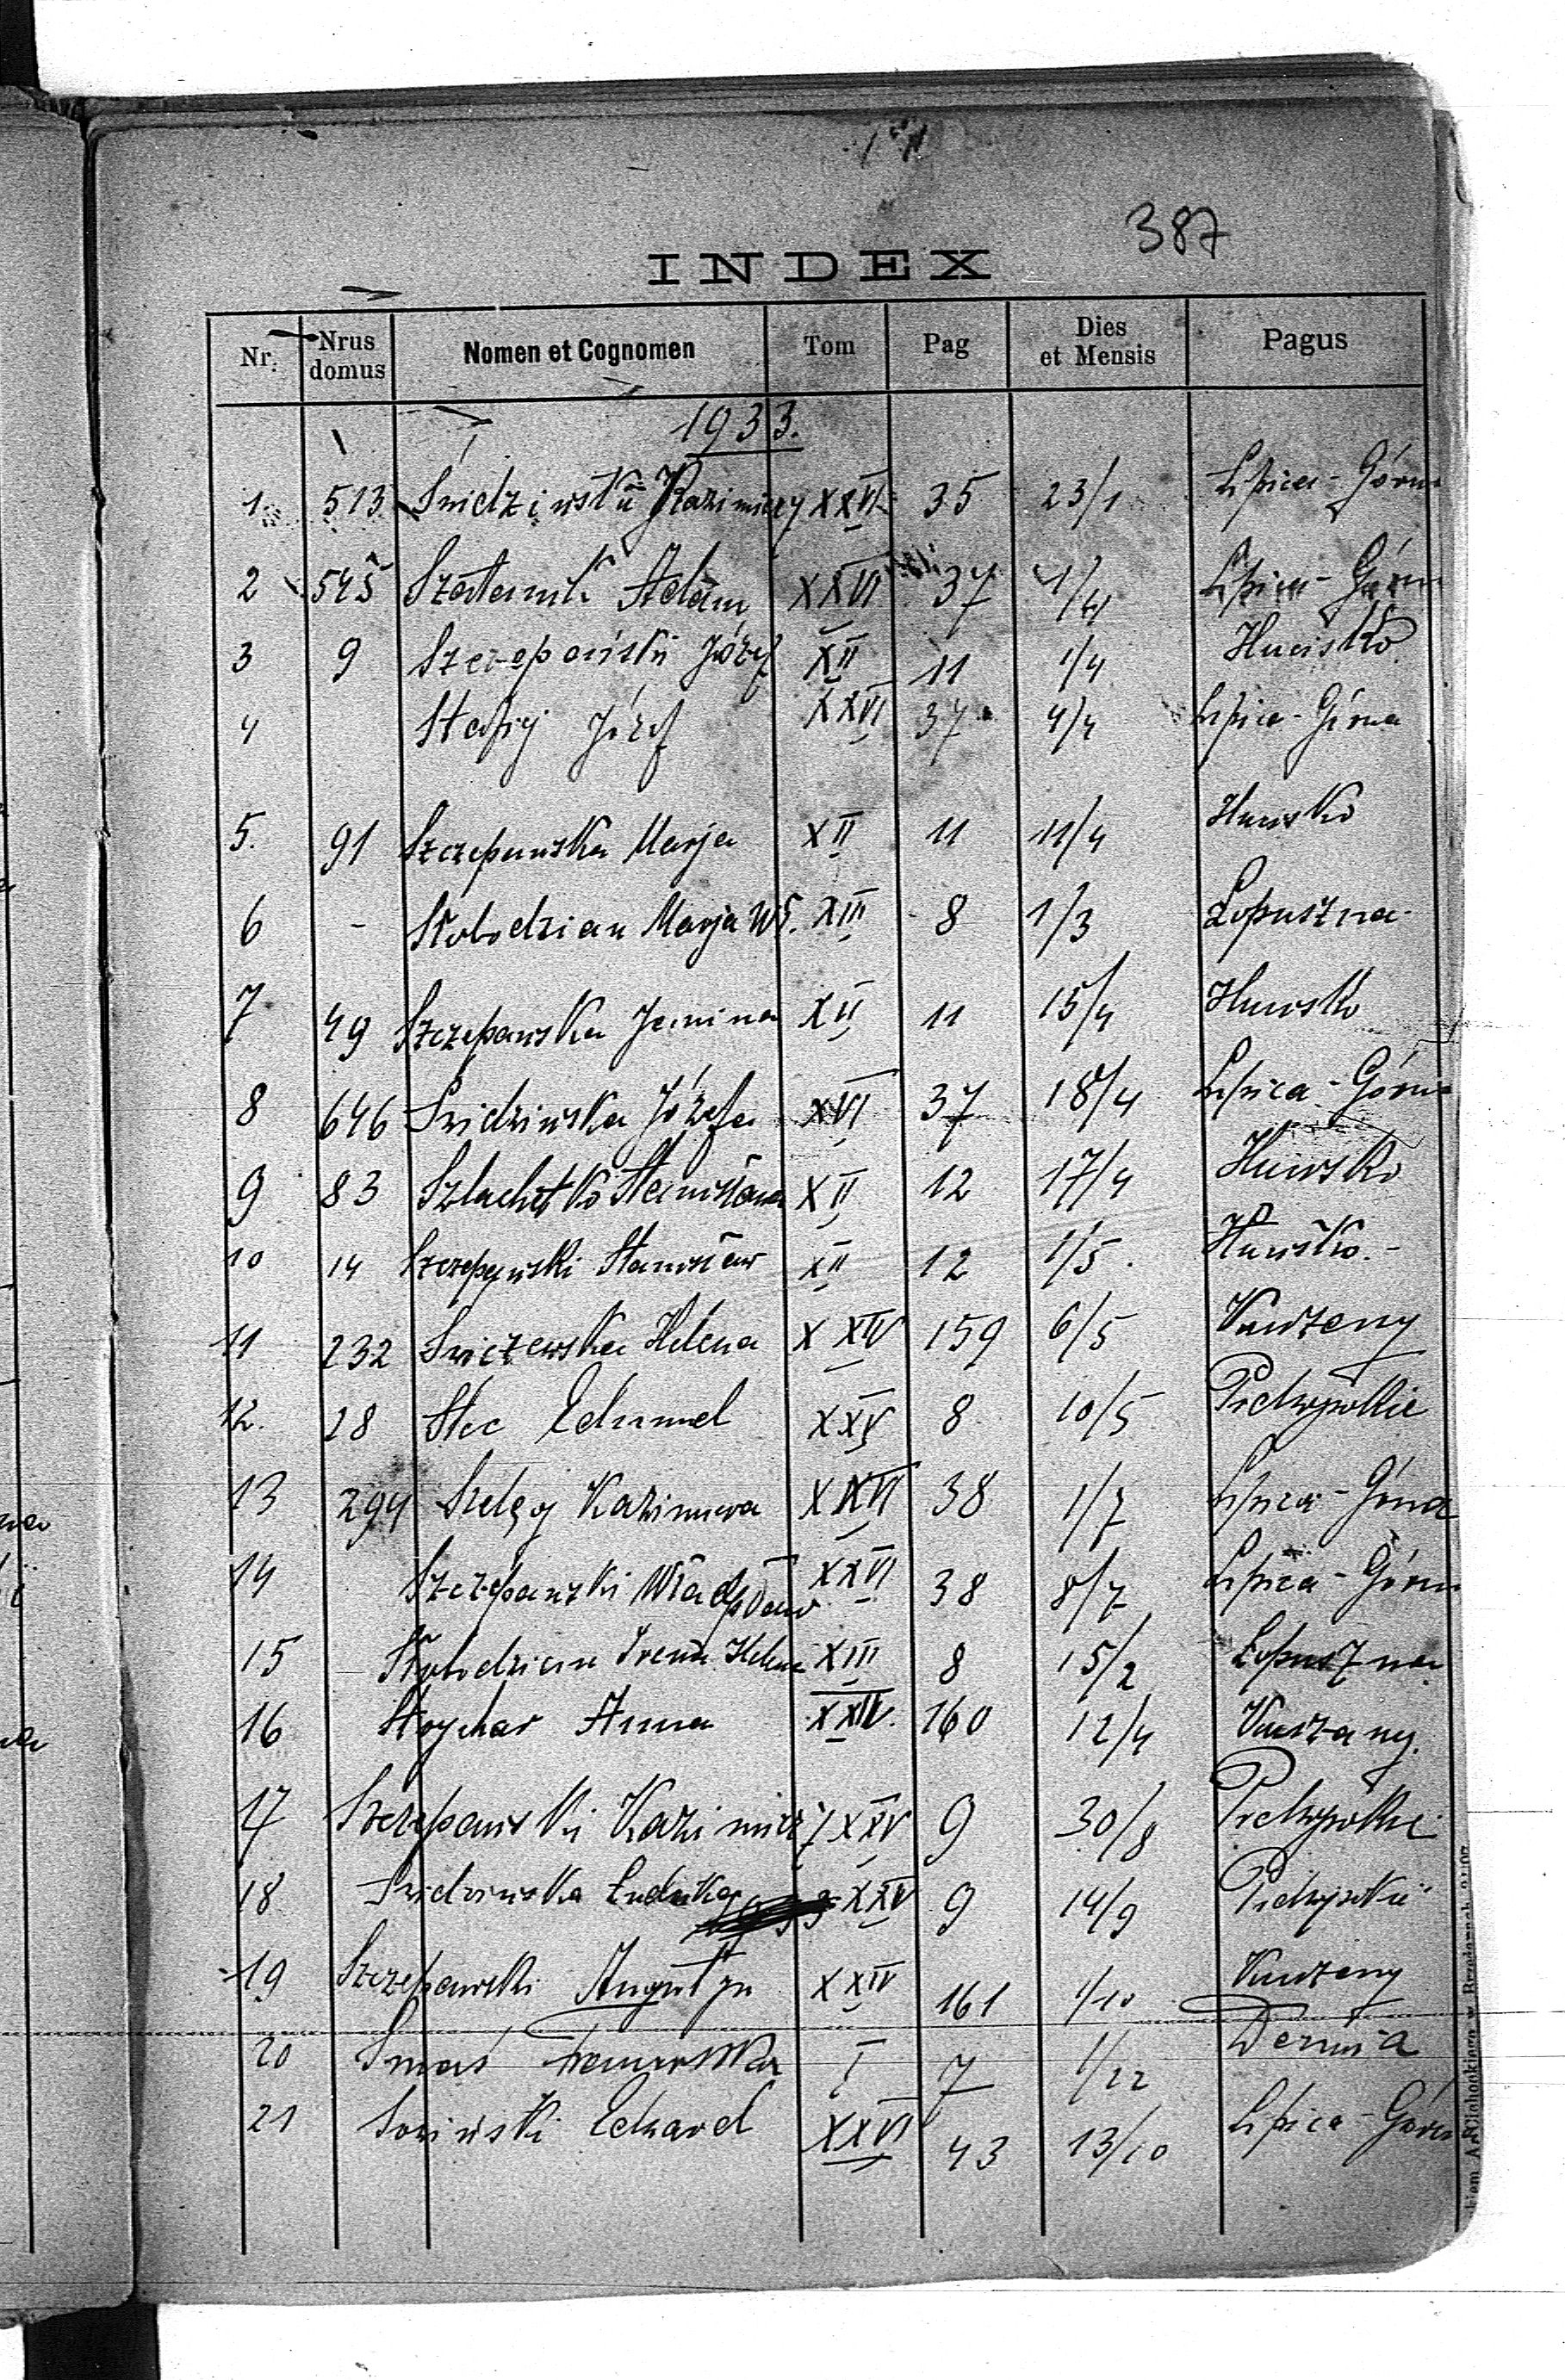 387
INDEX
Nr. Nrus domus Nomen et Cognomen Tom Pag Dies et Mensis Pagus
1933.
1. 513 Śnidziński Kazimierz XXVI 35 23/1 Lipica-Górna
2 545 Adam XXVI 37 1/4 Lipica-Górna
3 9 Szczepański Józef XII 11 1/4 Hucisko
4 Józef XXVI 37 4/4 Lipica-Górna
5. 91 Szczepanska Marja XII 11 11/4 Hucisko
6 - Słobodzian Marja XIII 8 1/3 Łopuszna
7 49 Szczepanska Janina XII 11 15/4 Hucisko
8 646 Józefa XVI 37 18/4 Lipica-Górna
9 83 Szlachetko Stanisława XII 12 17/4 Hucisko
10 14 Szczepański Stanisław XII 12 1/5. Hucisko.-
11 232 Helena XXIV 159 6/5
12. 28 Stec XXV 8 10/5
13 294 Szeląg Kazimiera XXVI 38 1/7 Lipica-Górna
14 Szczepański Władysław XXVI 38 8/7 Lipica-Górna
15 Słobodzian Irena Helena XIII 8 15/2 Łopuszna
16 Anna XXIV. 160 12/4
17 Szczepański Kazimierz XXV 9 30/8
18 XXV 9 14/9
19 Szczepański Augustyn XXIV 161 1/10
20 I 7 1/12
21 Edward XXVI 43 13/10 Lipica-Górna